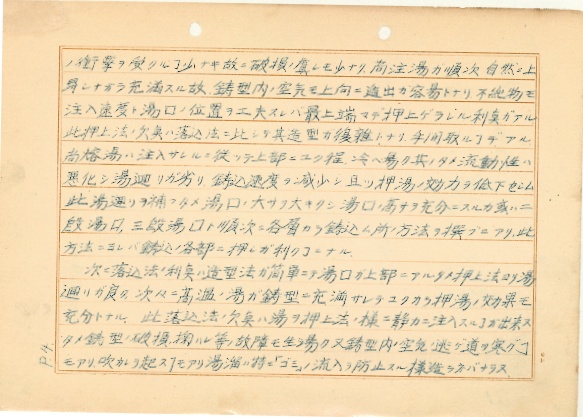 ノ衝撃ヲ受クルヿ少ナキ故ニ破損ノ虞レモ少ナリ、尚注湯ガ順次自然ニ上
昇シナガラ充満スル故、鋳型内ノ空気モ上向ニ逃出ガ容易トナリ不純物モ
注入速度ト湯口ノ位置ヲ工夫スレバ最上端マデ押上ゲラレル利点ガアル
此押上法ノ欠点ハ落込法ニ比シテ其造型ガ複雑トナリ手間取ルヿデアル
尚熔湯ハ注入サレルニ従ッテ上部ニユク程冷ヘ易ク其ノタメ流動性ハ
悪化シ湯廻リガ劣リ鋳込速度ヲ減少シ且ツ押湯ノ効力ヲ低下セシム
此湯廻リヲ補フタメ湯口ノ大サヲ大キクシ湯口ノ高サヲ充分ニスルカ或ハ二
段湯口、三段湯口ト順次ニ各層カラ鋳込ム所ノ方法ヲ撰ブニアリ、此
方法ニヨレバ鋳込ノ各部ニ押シガ利クヿニナル、
次ニ落込法ノ利点ハ造型法ガ簡単ニテ湯口ガ上部ニアルタメ押上法ヨリ湯
廻リガ良ク、次々ニ高温ノ湯ガ鋳型ニ充満サレテユクカラ押湯ノ効果モ
充分トナル、此落込法ノ欠点ハ湯ヲ押上法ノ様ニ静カニ注入スルヿガ出来ヌ
タメ鋳型ノ破損、掬ハル等ノ故障モ生ジ易ク又鋳型内ノ空気ノ逃ゲ道ヲ塞グヿ
モアリ、吹カレヲ起スヿモアリ湯溜ハ特ニ「ゴミ」ノ流入ヲ防止スル様造ラネバナラヌ
P4